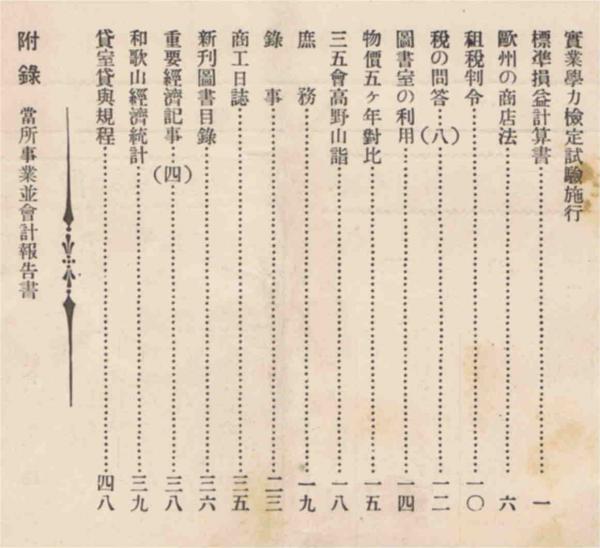 實業學力檢定試驗施行
標準損益計算書……一
歐州の商店法……六
租税判令……一〇
税の問答(八)……一二
圖書室の利用……一四
物價五ヶ年對比……一五
三五會高野山詣……一八
庶務……一九
錄事……二三
商工日誌……三五
新刊圖書目錄……三六
重要經濟記事(四)……三八
和歌山經濟統計……三九
貸室貸與規程……四八
附錄 當所事業並會計報告書